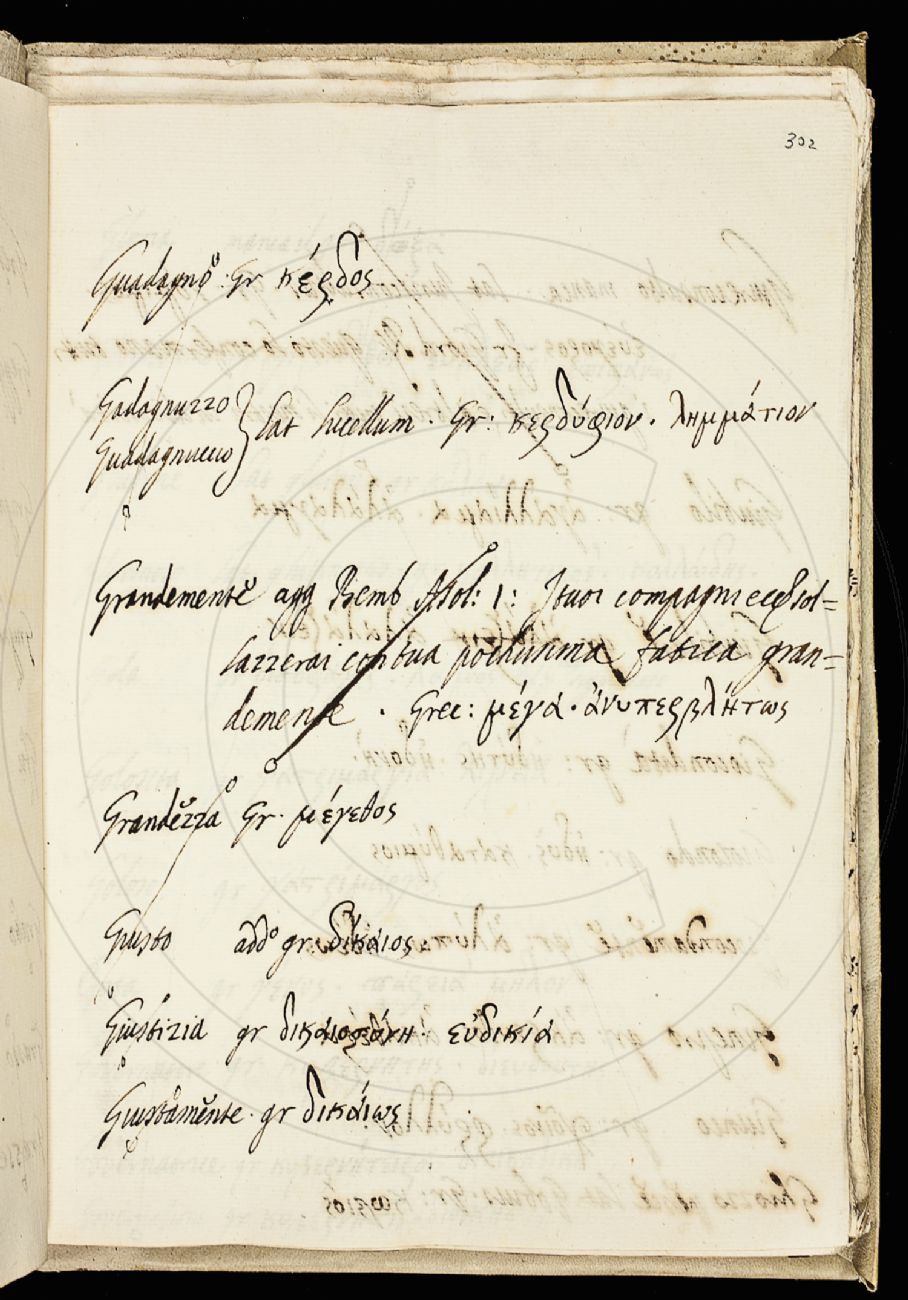 302
Guadagno · Gr κέρδος
Gadagnuzzo
Guadagnuccio
lat lucellum · Gr: κερδύφιον · λημμάτιον
Grandemente agg Bemb Asol: 1: I tuoi compagni sol=
lazzerai con tua pochissima fatica gran=
demente · Grec: μέγα · ἀνυπερβλήτως
Grandezza Gr · μέγεθος
Giusto add° gr δίκαιος
Giustizia gr δικαιοσύνη · εὐδικία
Giustamente · gr δικαίως